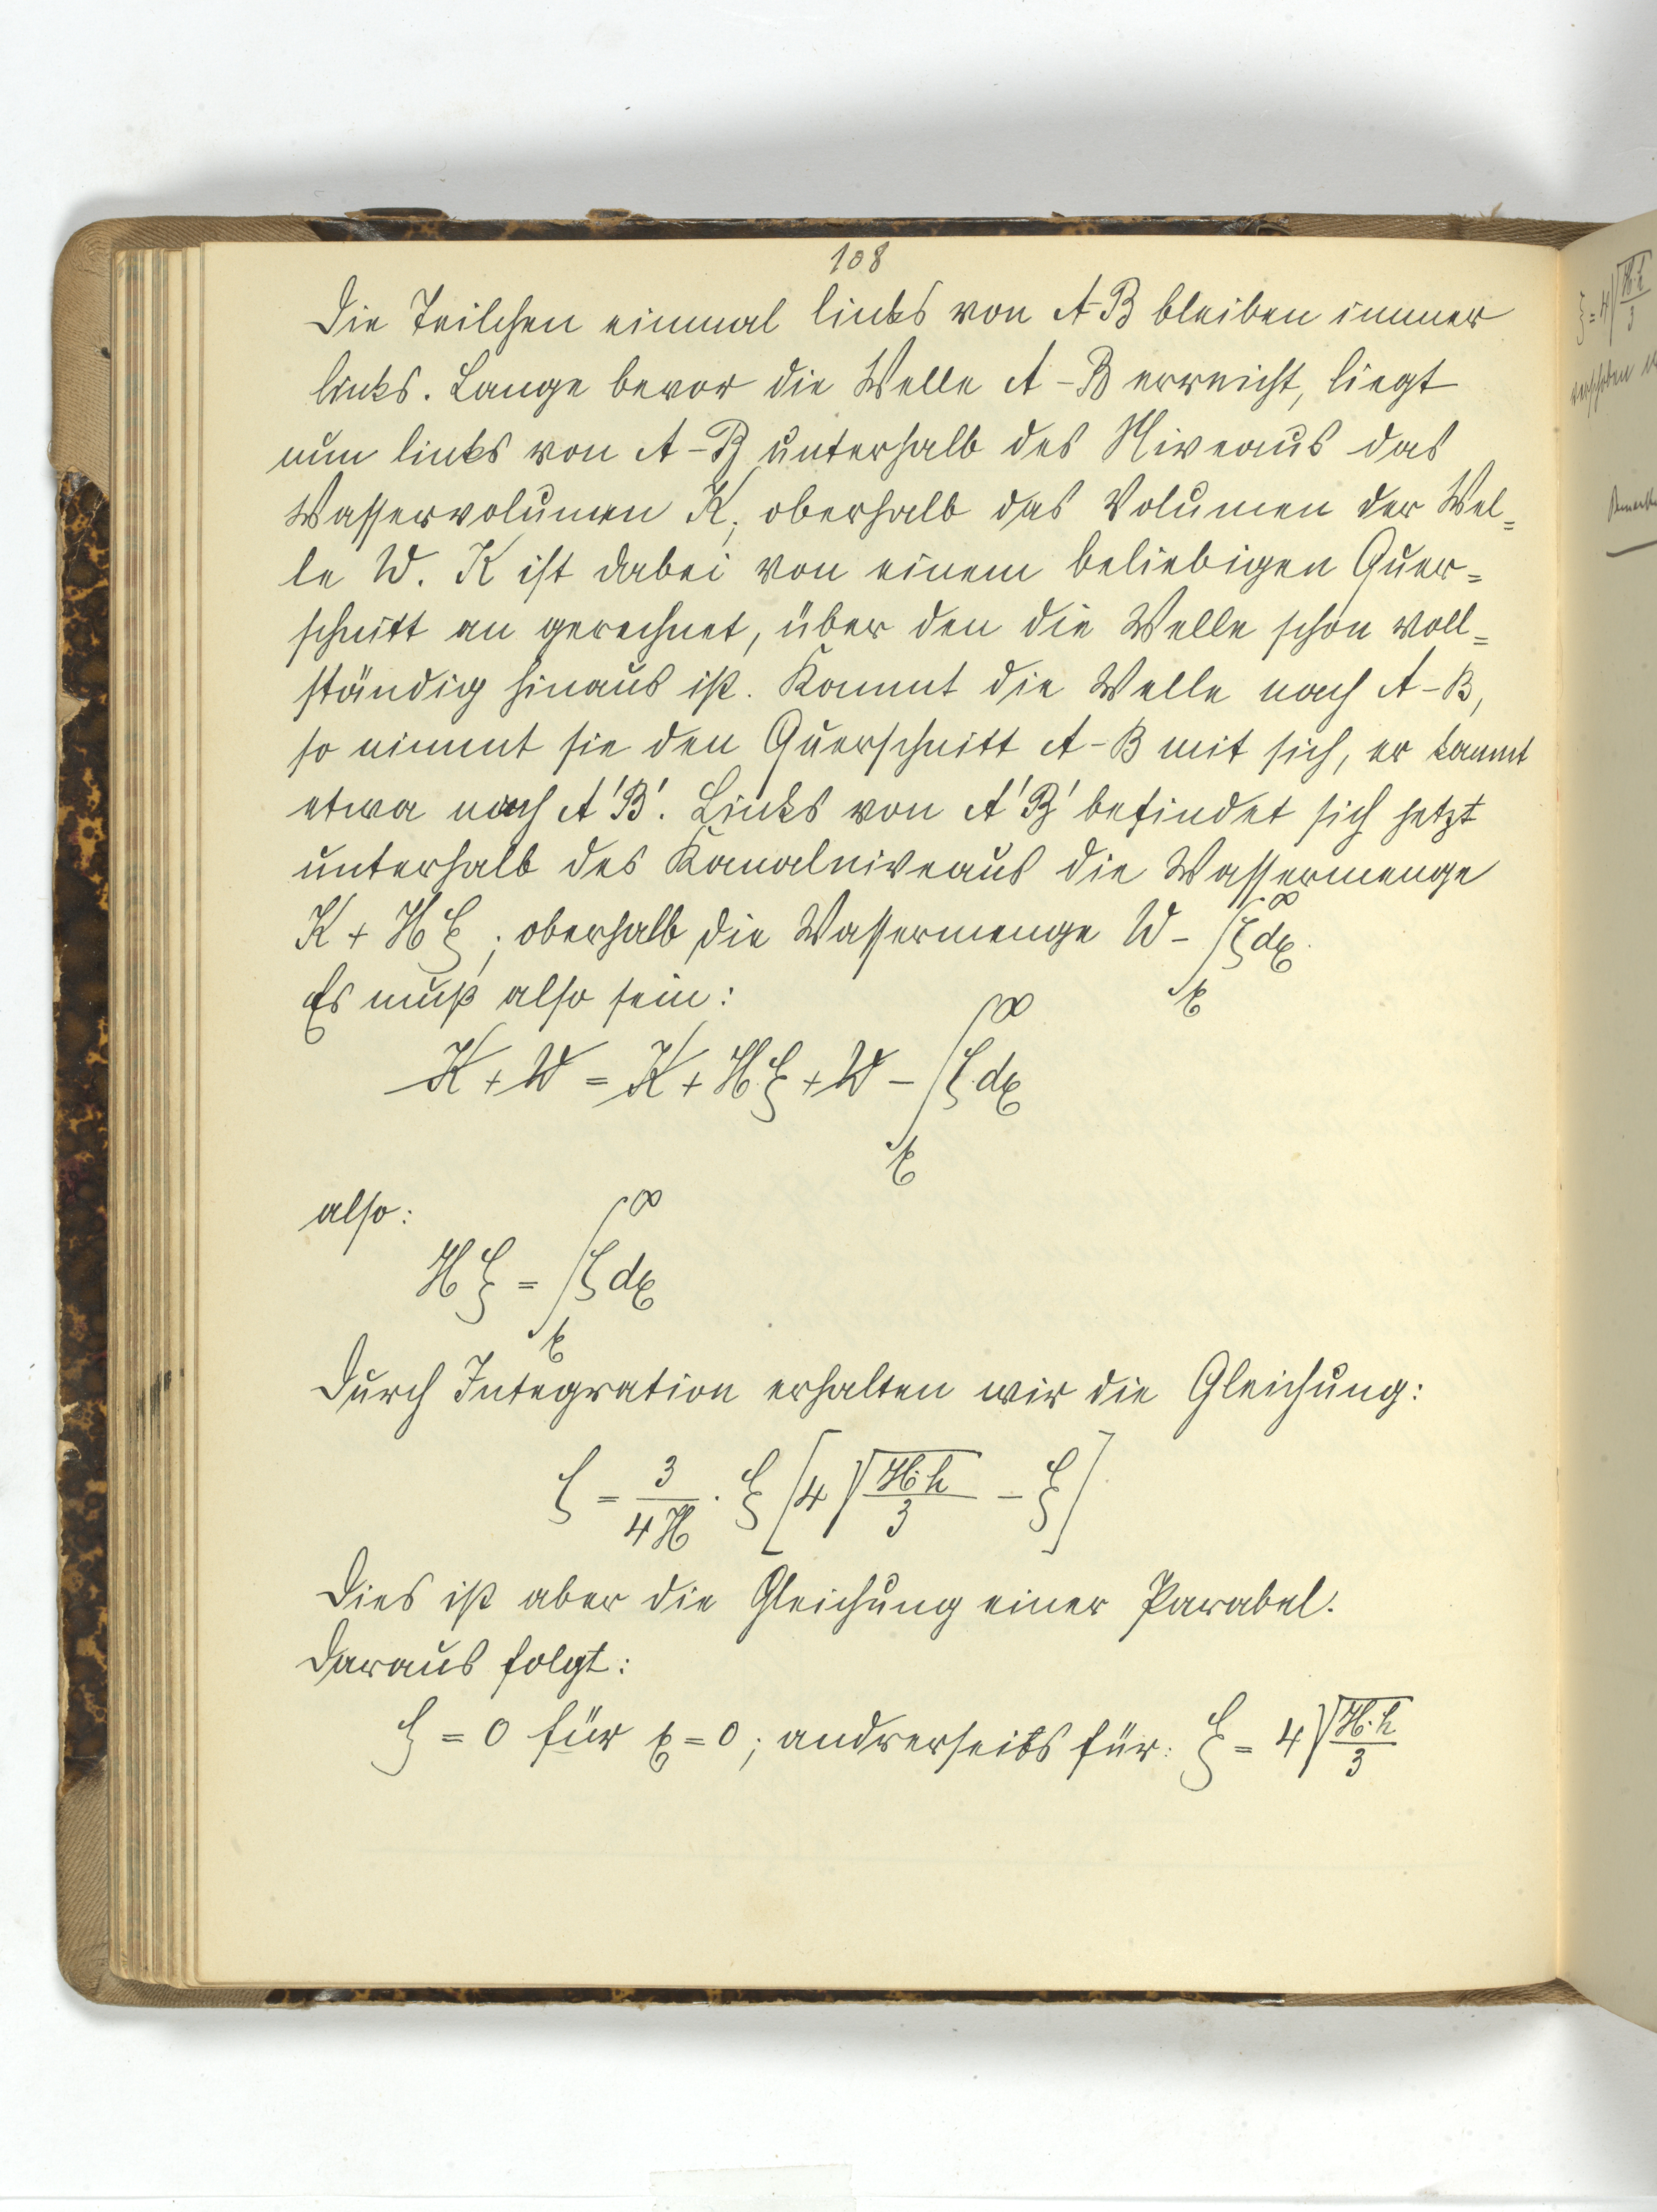 108
Die Teilchen einmal links von A-B bleiben immer
links. Lange bevor die Welle A-B erreicht, liegt
nun links von A-B unterhalb des Niveaus das
Wasservolumen K, oberhalb das Volumen der Wel=
le W. K ist dabei von einem beliebigen Quer=
schnitt an gerechnet, über den die Welle schon voll=
ständig hinaus ist. Kommt die Welle nach A-B,
so nimmt sie den Querschnitt A-B mit sich, er kommt
etwa nach A'B'. Links von A'B' befindet sich jetzt
unterhalb des Kanalniveaus die Wassermenge
K + Hξ; oberhalb die Wassermenge W - ∫_x^∞ ζdx.
Es muß also sein:
K + W = K + H·ξ + W - ∫_x^∞ ζ·dx
also:
Hξ = ∫_x^∞ ζdx
Durch Integration erhalten wir die Gleichung:
ζ = 3/4H · ξ [4 √(H·h/3) - ξ]
Dies ist aber die Gleichung einer Parabel.
Daraus folgt:
ζ = 0 für x = 0; andrerseits für: ξ = 4 √(H·h/3)
ξ = 4 √(H·h/3)